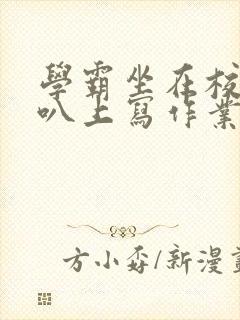 學霸坐在校
叭上寫作業
方小孬/新漫畫